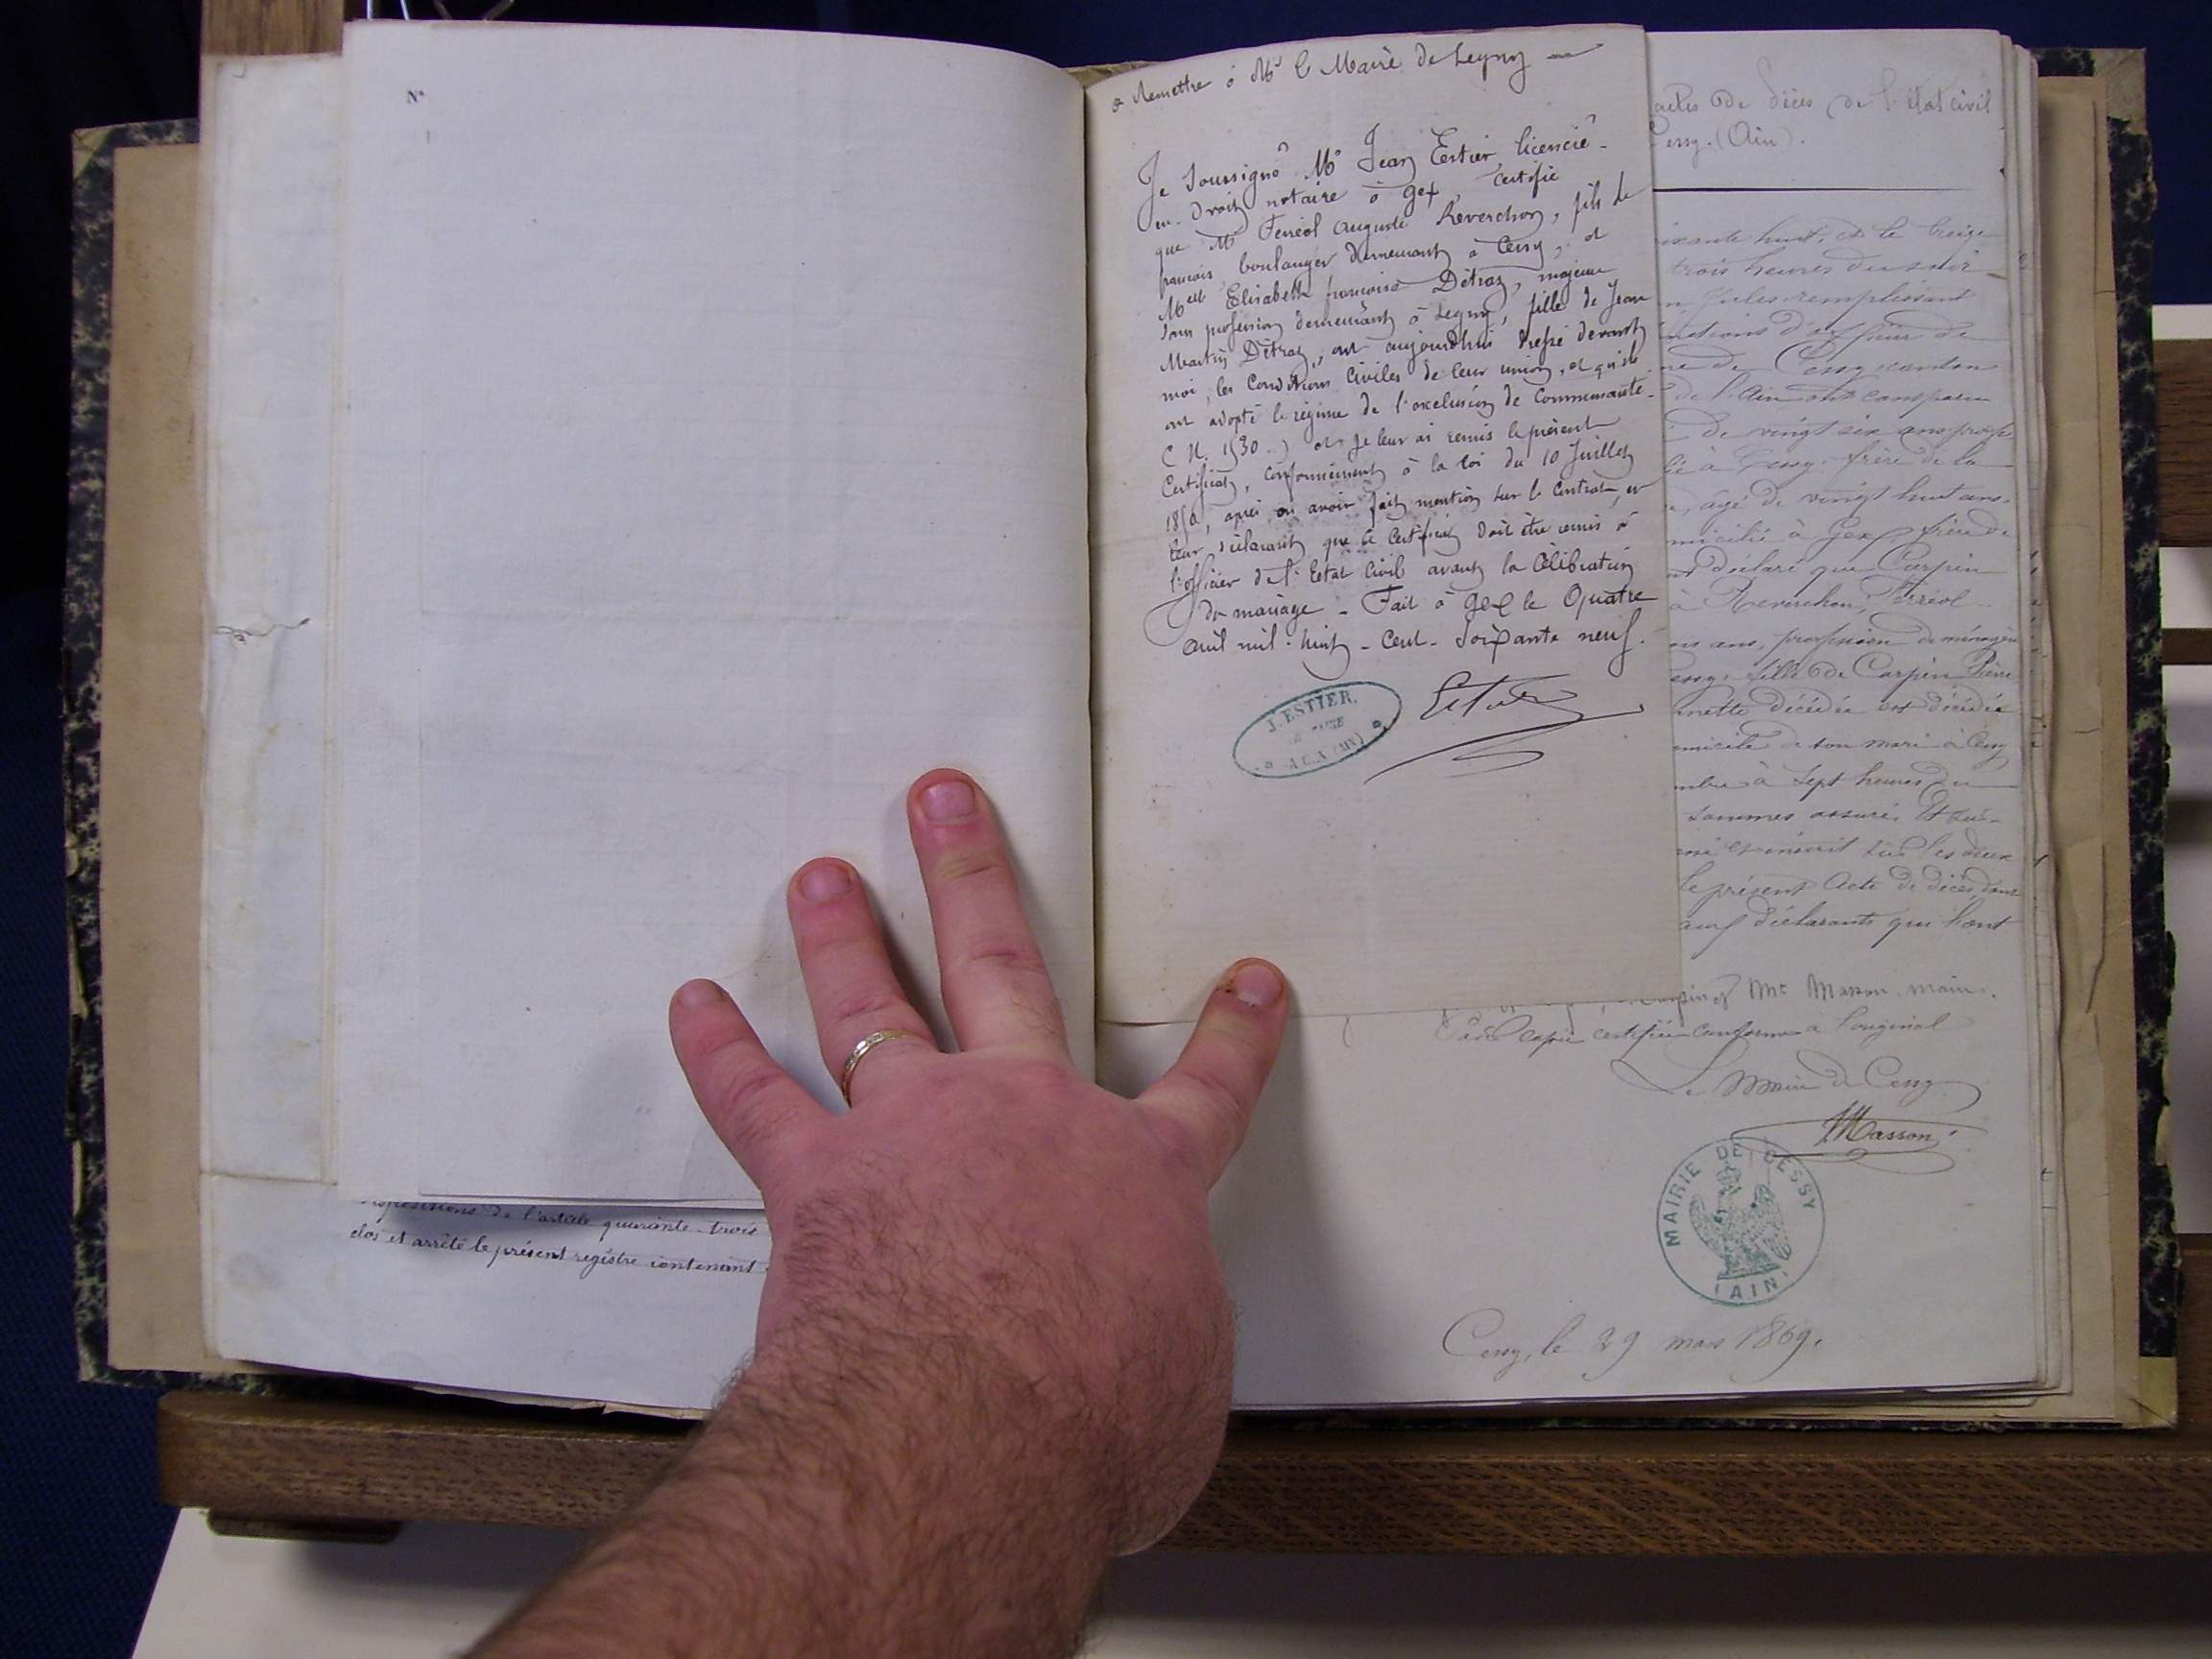 N°
a Remettre à Mr le Maire de Segny
Je soussigné Me Jean Estier, licencié
en droit, notaire à Gex, certifie
que Mr Ferréol Auguste Reverchon, fils de
francois, boulanger demeurant à Cessy, et
Melle Elisabeth francoise Détraz, majeure
sans profession demeurant à Segny, fille de Jean
Martin Détraz, ont aujourdhui dressé devant
moi, les Conditions Civiles de leur union, et qu'ils
ont adopté le régime de l'exclusion de Communauté
C N. 1530 .) et je leur ai remis le présent
Certificat, conformément à la loi du 10 Juillet
1850, après en avoir fait mention sur le Contrat, en
leur déclarant que ce Certificat doit être remis à
l'officier de l'Etat Civil avant la Célébration
du mariage - Fait à Gex le Quatre
avril mil-huit-cent-soixante neuf.
Estier
J. ESTIER,
A GEX (AIN)
actes de décès de l'état civil
Cessy. (Ain).
soixante huit, et le treize
trois heures du soir
Jules remplissant
fonctions d'officier de
de Cessy canton
de l'Ain ont comparu
de vingt six ans prof
à Cessy, frère de la
, agé de vingt huit ans,
domicilié à Gex, frère de
déclaré que Carpin
à Reverchon, Ferréol
ans, profession de ménagère
Cessy, fille de Carpin Pierre
décédée est décédée
domicile de son mari à Cessy
à sept heures du
sommes assuré. Et
et inscrit sur les deux
le présent Acte de décès dont
aux déclarants qui l'ont
Carpin et Mr Masson, maire.
Pour copie certifiée conforme à l'original
Le Maire de Cessy
Masson
MAIRIE DE CESSY
(AIN)
Cessy, le 29 mars 1869.
dispositions de l'article quarante-trois
clos et arrêté le présent registre contenant